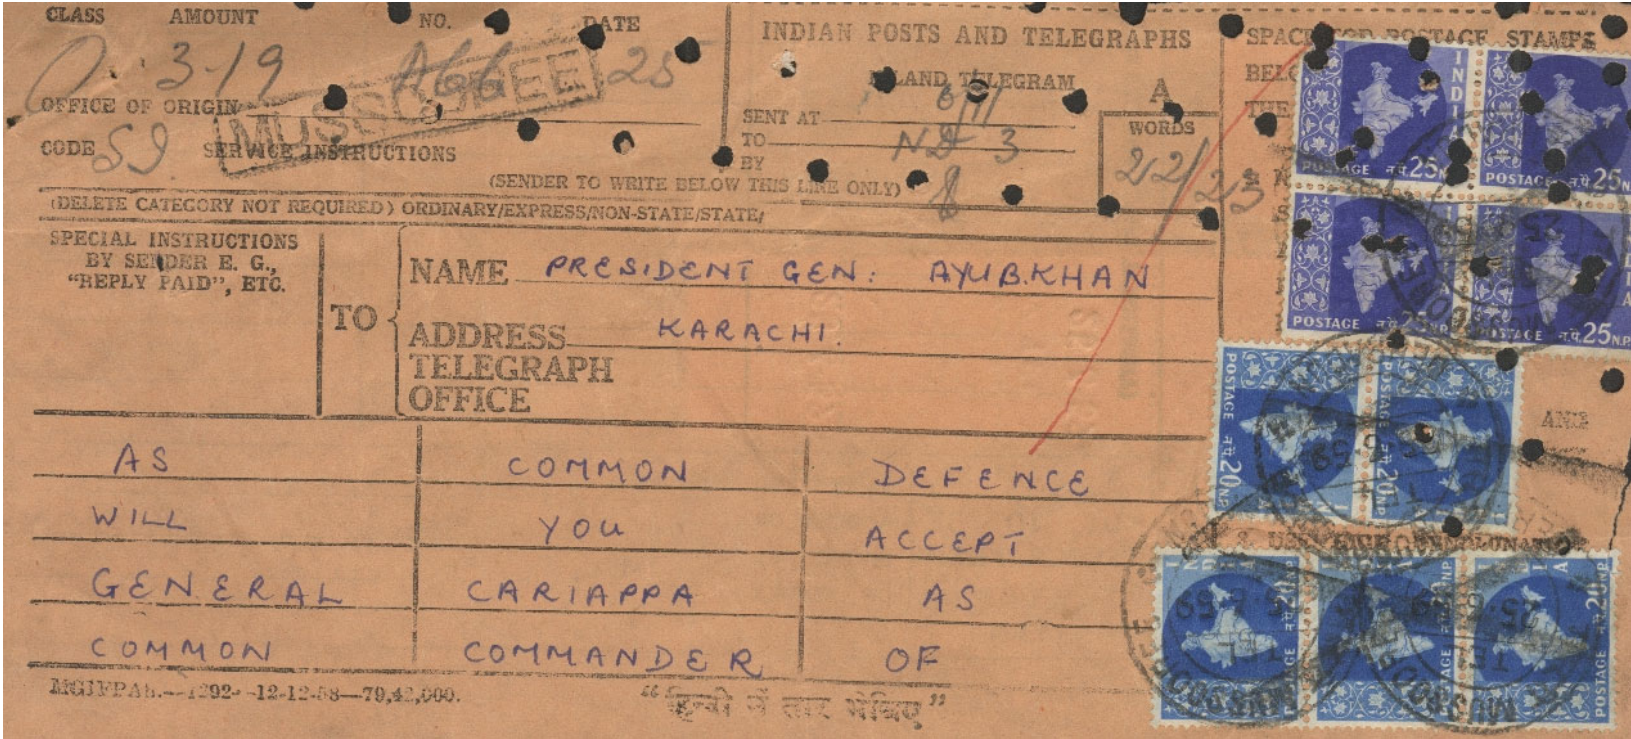 CLASS AMOUNT NO. DATE
3-19 A66 25
OFFICE OF ORIGIN
MUSSOOREE
CODE SERVICE INSTRUCTIONS
INDIAN POSTS AND TELEGRAPHS
INLAND TELEGRAM A
SENT AT
TO ND 3
BY
WORDS
22/23
SPACE FOR POSTAGE STAMPS
THE
(SENDER TO WRITE BELOW THIS LINE ONLY)
(DELETE CATEGORY NOT REQUIRED) ORDINARY/EXPRESS/NON-STATE/STATE/
SPECIAL INSTRUCTIONS
BY SENDER E. G.,
"REPLY PAID", ETC.
TO
NAME PRESIDENT GEN: AYUB.KHAN
ADDRESS KARACHI.
TELEGRAPH
OFFICE
AS COMMON DEFENCE
WILL YOU ACCEPT
GENERAL CARIAPPA AS
COMMON COMMANDER OF
12-12-58—79,42,000.
"हिन्दी में तार भेजिए"
INDIA
POSTAGE न.पै.25 N.P.
POSTAGE न.पै.25 N.P.
POSTAGE न.पै.25 N.P.
POSTAGE न.पै.25 N.P.
POSTAGE न.पै.20 NP
POSTAGE न.पै.20 NP
POSTAGE न.पै.20 NP
POSTAGE न.पै.20 NP
POSTAGE न.पै.20 NP